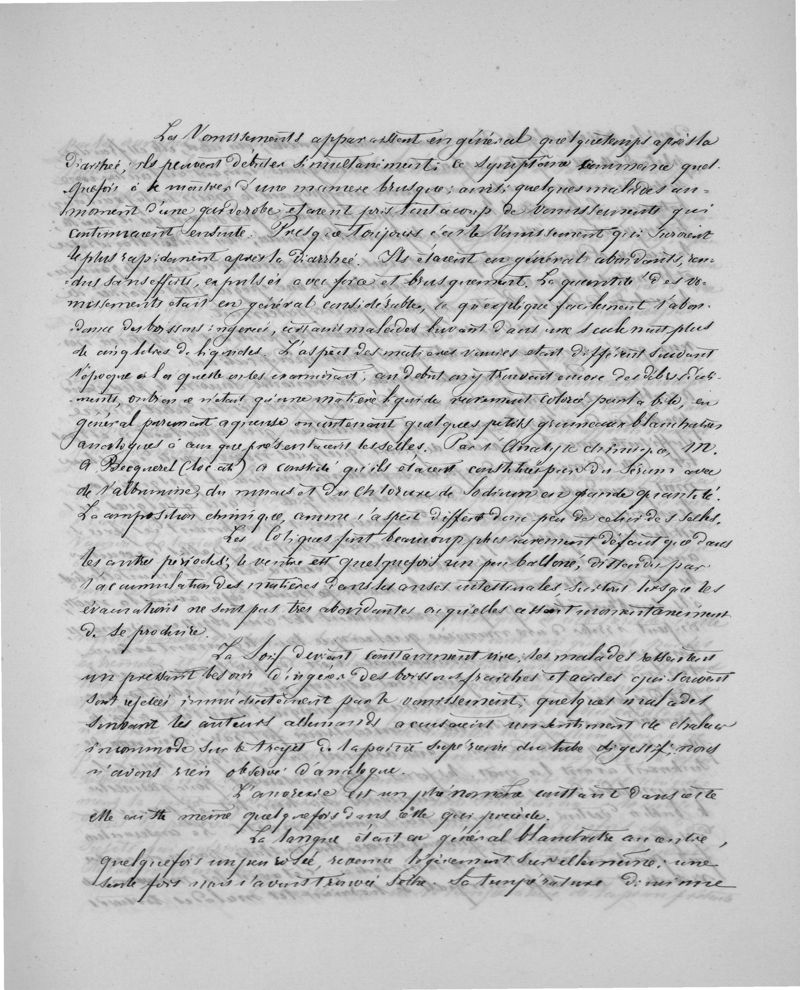 Les Vomissements apparaissent en général quelque temps après la
Diarrhée; ils peuvent débuter simultanément; ce symptôme commence quel-
quefois à se montrer d'une manière brusque; ainsi quelques malades au
moment d'une garderobe étaient pris tout à coup de vomissements qui
continuaient ensuite. Presque toujours c'est le vomissement qui survient
le plus rapidement après la diarrhée. Ils étaient en général abondants, ren-
dus sans efforts, expulsés avec force et brusquement. La quantité des vo-
missements était en général considérable, ce qu'explique facilement l'abon-
dance des boissons ingérées, certains malades buvant dans une seule nuit plus
de cinq litres de liquides. L'aspect des matières vomies était différent suivant
l'époque à laquelle on les examinait; au début on y trouvait encore des débris d'ali-
ments, ou bien ce n'était qu'une matière liquide rarement colorée par la bile, en
général purement aqueuse ou contenant quelques petits grumeaux blanchâtres
analogues à ceux que présentaient les selles. Par l'Analyse chimique, M.
A Becquerel (loc cit) a constaté qu'ils étaient constitués par du Sérum avec
de l'albumine, du mucus et du Chlorure de Sodium en grande quantité.
La composition chimique, comme l'aspect diffère donc peu de celui des selles.
Les Coliques font beaucoup plus rarement défaut que dans
les autres périodes; le ventre est quelquefois un peu ballonné, distendu par
l'accumulation des matières dans les anses intestinales surtout lorsque les
évacuations ne sont pas très abondantes ou qu'elles cessent momentanément
de se produire.
La Soif devient constamment vive; les malades ressentent
un pressant besoin d'ingérer des boissons fraîches et acides qui souvent
sont rejetées immédiatement par le vomissement; quelques malades
suivant les auteurs allemands accusaient un sentiment de chaleur
incommode sur le trajet de la partie supérieure du tube digestif; nous
n'avons rien observé d'analogue.
L'anorexie est un phénomène constant dans cette
elle existe même quelquefois dans celle qui précède.
La langue était en général blanchâtre au centre,
quelquefois un peu rosée, revenue légèrement sur elle même; une
seule fois nous l'avons trouvée sèche. Sa température diminue